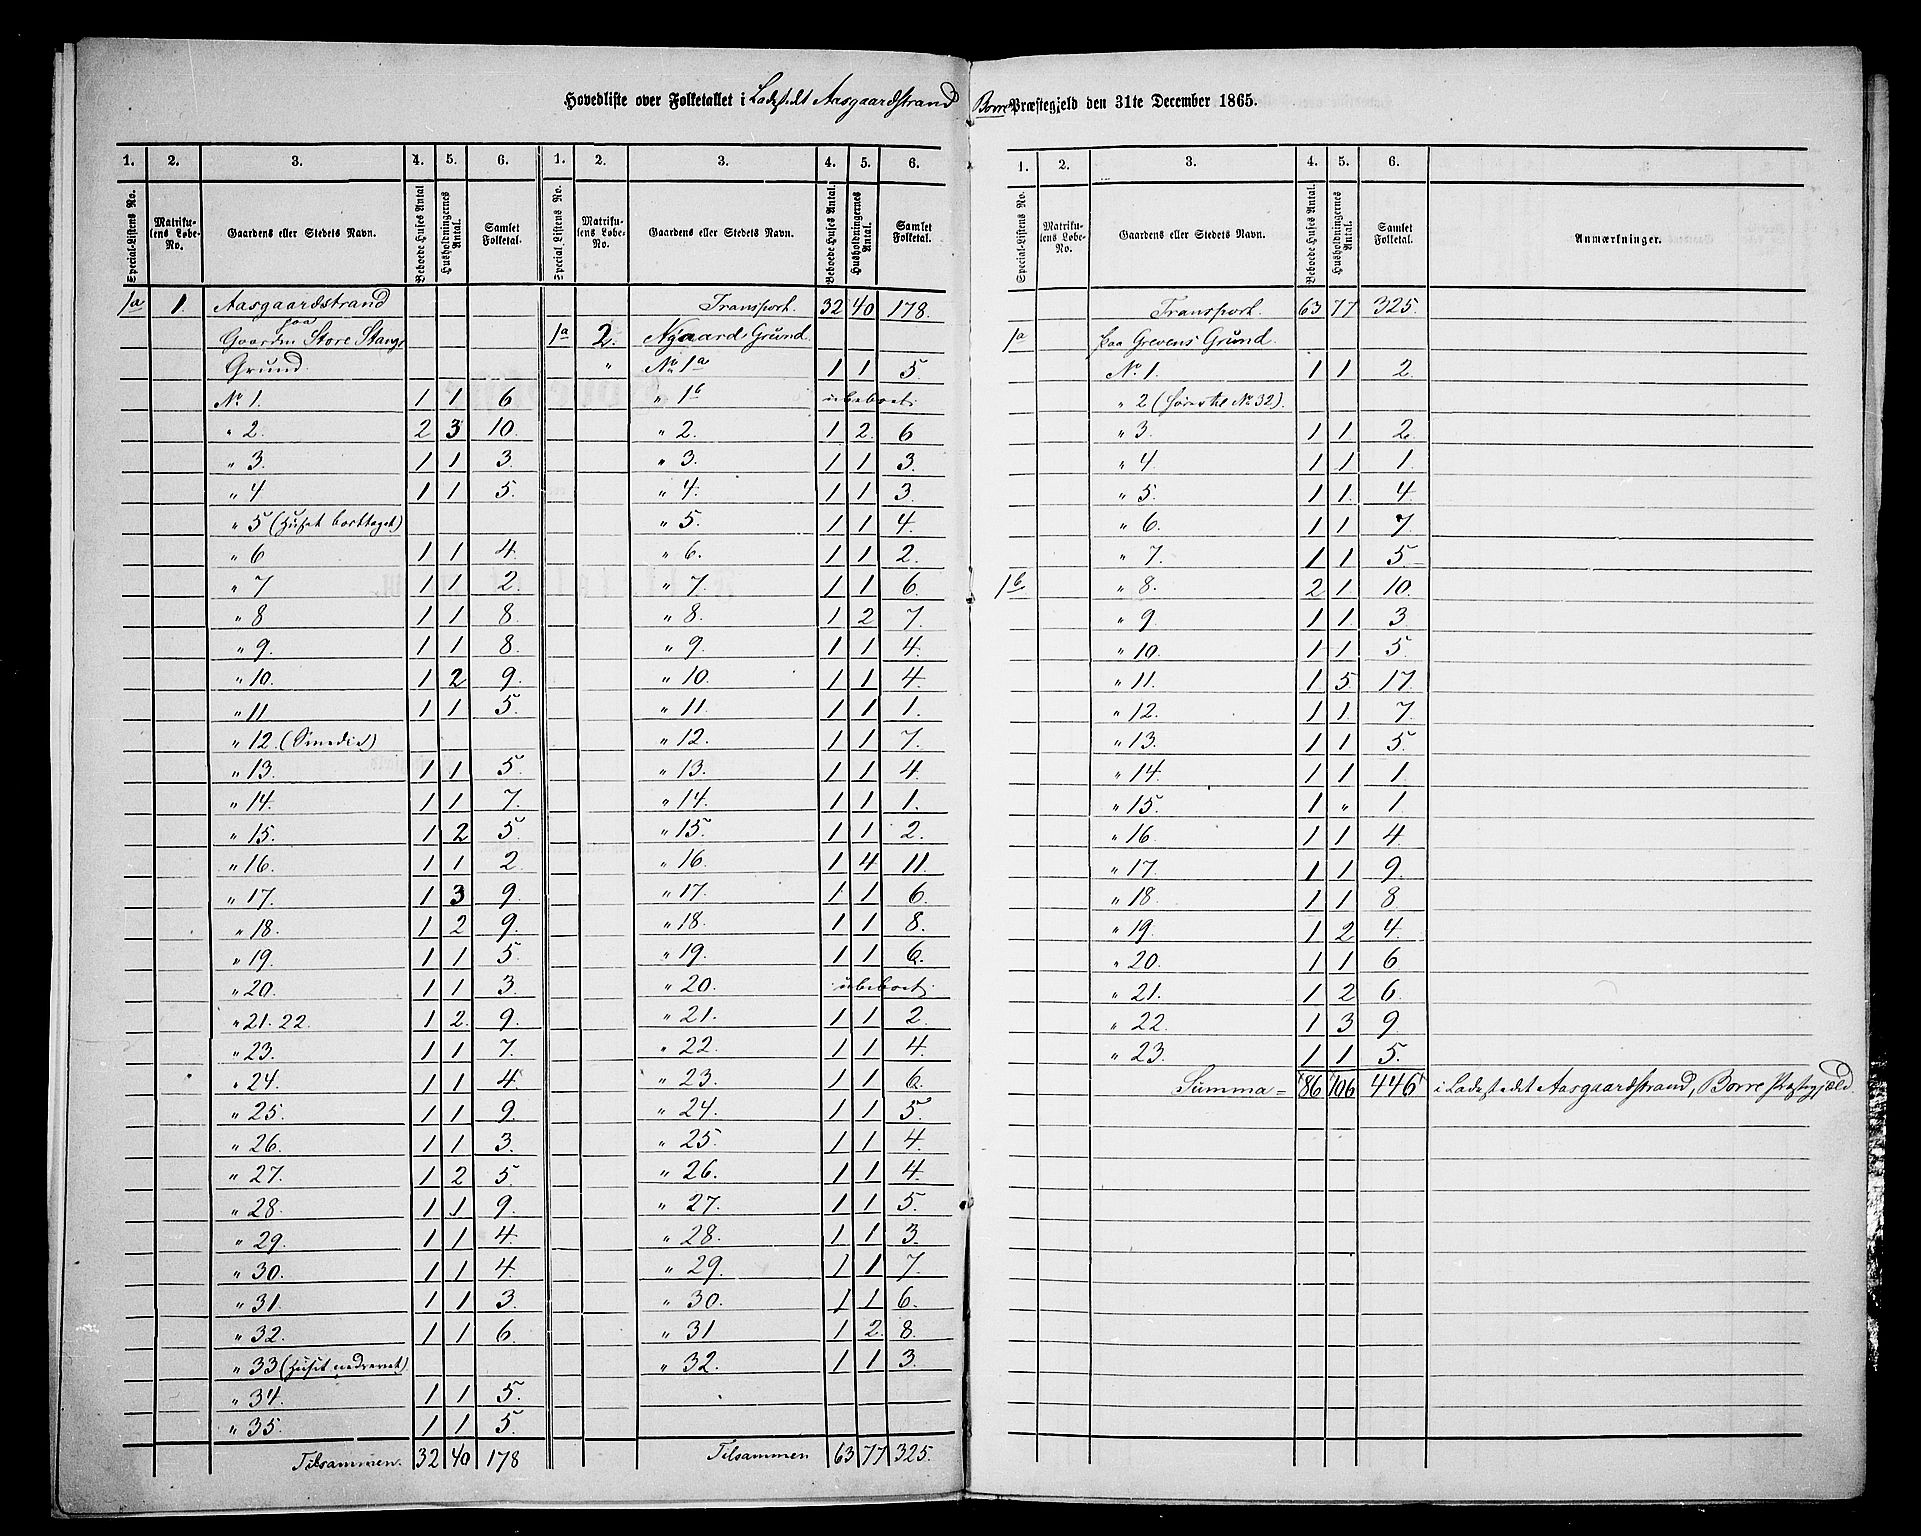 Hovedliste over Folketallet i Ladestedet Aasgaardstrand Borre Præstegjeld den 31te December 1865.
1. 2. 3. 4. 5. 6. 1. 2. 3. 4. 5. 6.
Special-Listens No. Matrikulens Løbe-No. Gaardens eller Stedets Navn. Beboede Huses Antal Husholdningernes Antal. Samlet Folketal. Special Listens No. Matrikulens Løbe-No. Gaardens eller Stedets Navn. Beboede Huses Antal. Husholdningernes Antal. Samlet Folketal.
1a 1. Aasgaardstrand Transport. 32 40 178.
paa
Gaarden Store Stangs 1a 2. Nygaards Grund.
Grund. " No 1a 1 1 5.
No 1. 1 1 6 " 1b ubeboet.
" 2. 2 3 10. " 2. 1 2. 6
" 3. 1 1 3. " 3. 1 1 3.
" 4 1 1 5. " 4. 1 1 3.
" 5 (Huset borttaget) " 5. 1 1 4.
" 6 1 1 4. " 6. 1 1 2.
" 7 1 1 2. " 7. 1 1 6
" 8 1 1 8. " 8. 1 2 7.
" 9. 1 1 8 " 9. 1 1 4.
" 10. 1 2 9. " 10. 1 1 4.
" 11 1 1 5. " 11. 1 1 1.
" 12. (Smedie) " 12. 1 1 7.
" 13. 1 1 5. " 13. 1 1 4.
" 14. 1 1 7. " 14. 1 1 1.
" 15. 1 2 5. " 15. 1 1 2.
" 16. 1 1 2 " 16. 1 4 11.
" 17. 1 3 9. " 17. 1 1 6.
" 18. 1 2 9. " 18. 1 1 8.
" 19. 1 1 5. " 19. 1 1 6.
" 20. 1 1 3. " 20. ubeboet.
" 21. 22. 1 2. 9. " 21. 1 1 2.
" 23. 1 1 7. " 22. 1 1 4.
" 24. 1 1 4. " 23. 1 1 6.
" 25. 1 1 9. " 24. 1 1 5.
" 26. 1 1 3. " 25. 1 1 4.
" 27. 1 2 5. " 26. 1 1 4.
" 28. 1 1 9. " 27. 1 1 5.
" 29. 1 1 4. " 28. 1 1 3.
" 30. 1 1 4. " 29. 1 1 7.
" 31. 1 1 3. " 30. 1 1 6.
" 32. 1 1 6. " 31 1 2. 8.
" 33 (Huset nedrevet) " 32. 1 1 3.
" 34. 1 1 5.
" 35. 1 1 5.
Tilsammen. 32 40 178 Tilsammen 63 77 325.
1. 2. 3. 4. 5. 6.
Special-Listens No. Matrikulens Løbe-No. Gaardens eller Stedets Navn. Beboede Huses Antal. Husholdningernes Antal. Samlet Folketal. Anmærkninger.
Transport. 63 77 325.
1a paa Grevens Grund.
No 1. 1 1 2.
" 2 ( No 32).
" 3. 1 1 2.
" 4 1 1 1.
" 5. 1 1. 4
" 6. 1 1 7.
" 7. 1 1 5
1b " 8. 2 1 10.
" 9 1 1 3.
" 10. 1 1 5.
" 11. 1. 5. 17.
" 12. 1 1. 7.
" 13. 1 1 5.
" 14. 1 1 1.
" 15. 1 " 1.
" 16 1 1 4.
" 17. 1 1 9.
" 18. 1 1 8
" 19. 1 2 4.
" 20. 1 1 6
" 21. 1 2 6.
" 22. 1 3 9
" 23. 1 1 5.
Summa = 86 106 446 i Ladestedet Aasgaardstrand, Borre Præstegjæld.